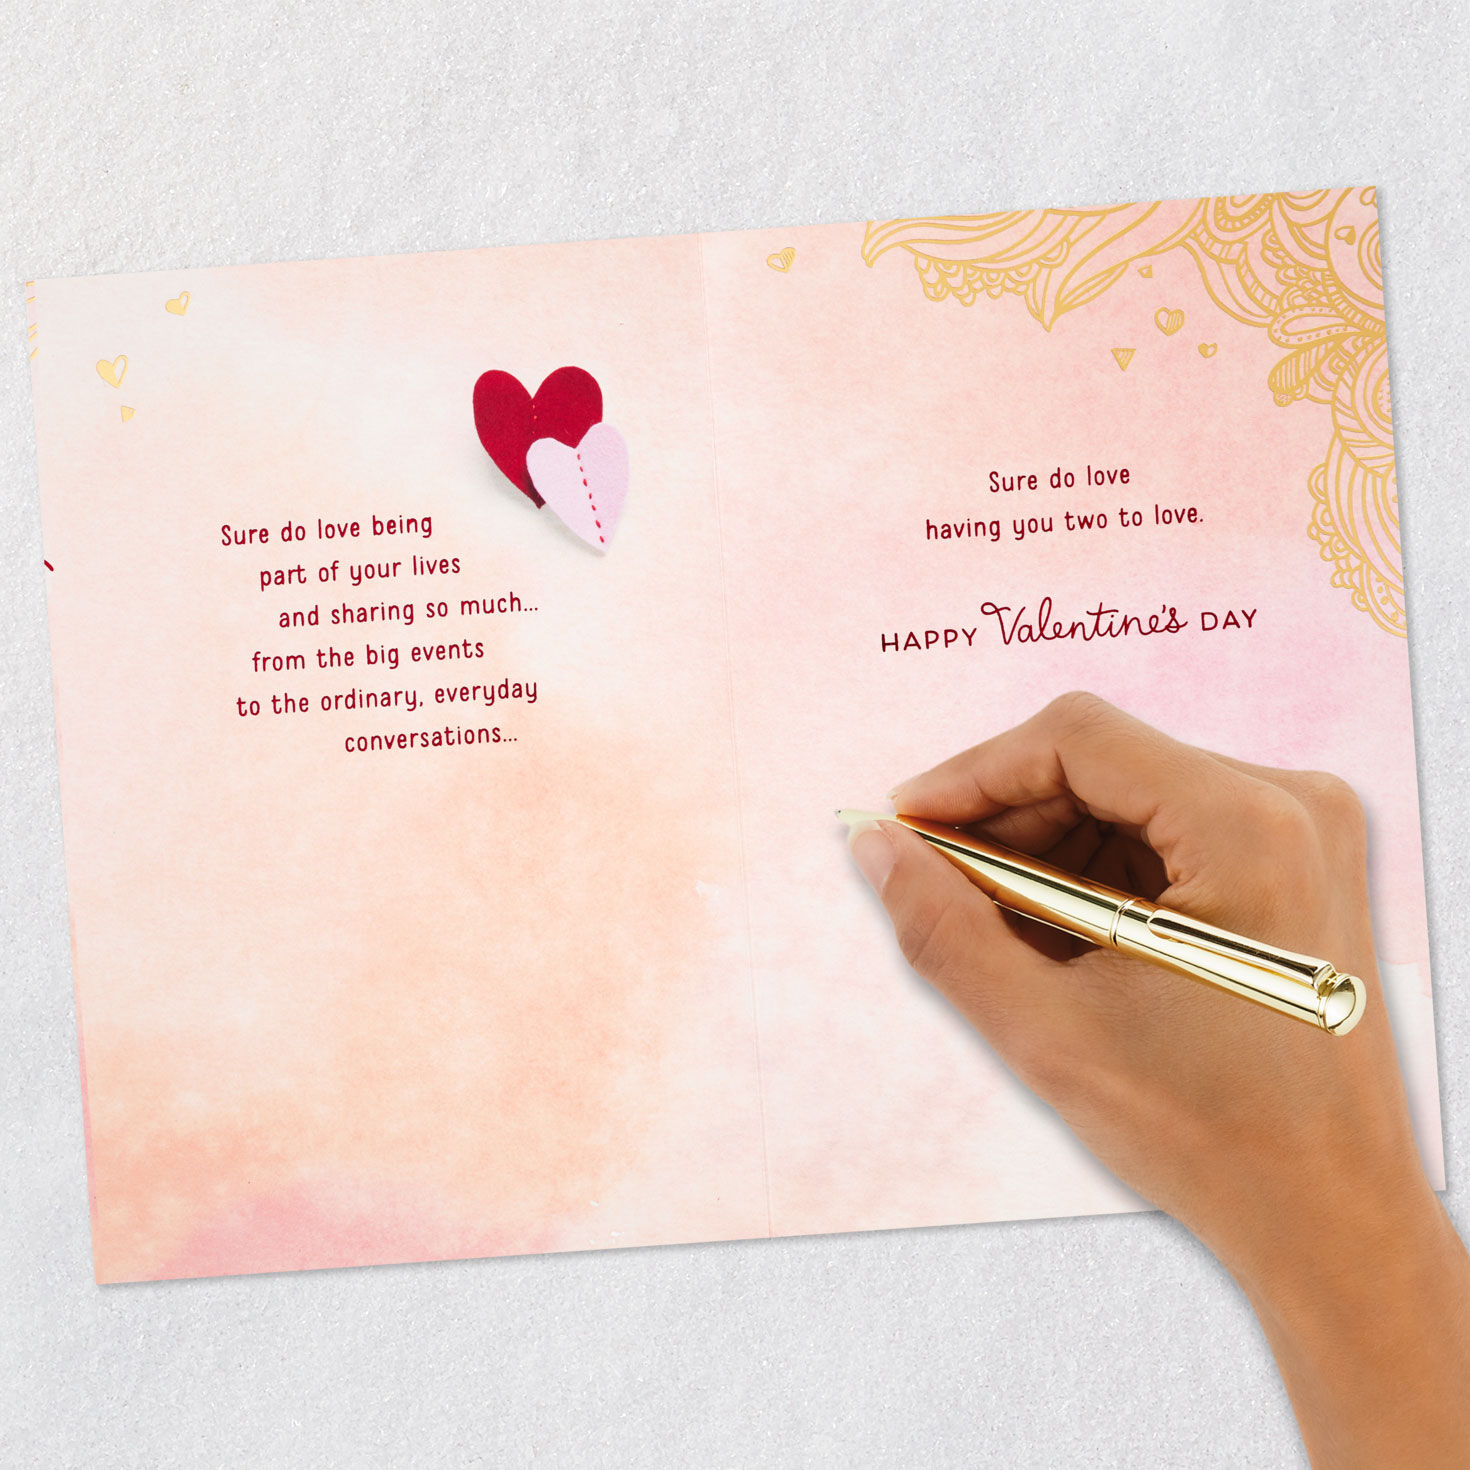 Sure do love being
part of your lives
and sharing so much...
from the big events
to the ordinary, everyday
conversations...
Sure do love
having you two to love.
HAPPY Valentine's DAY